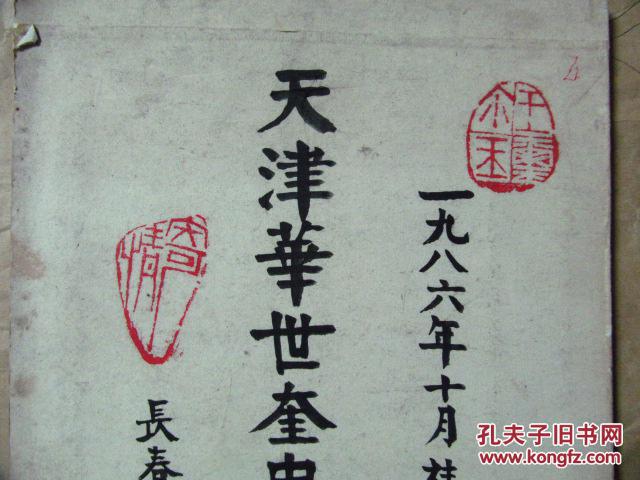 一九八六年十月
天津華世奎
長春
孔夫子旧书网
www.kongfz.com